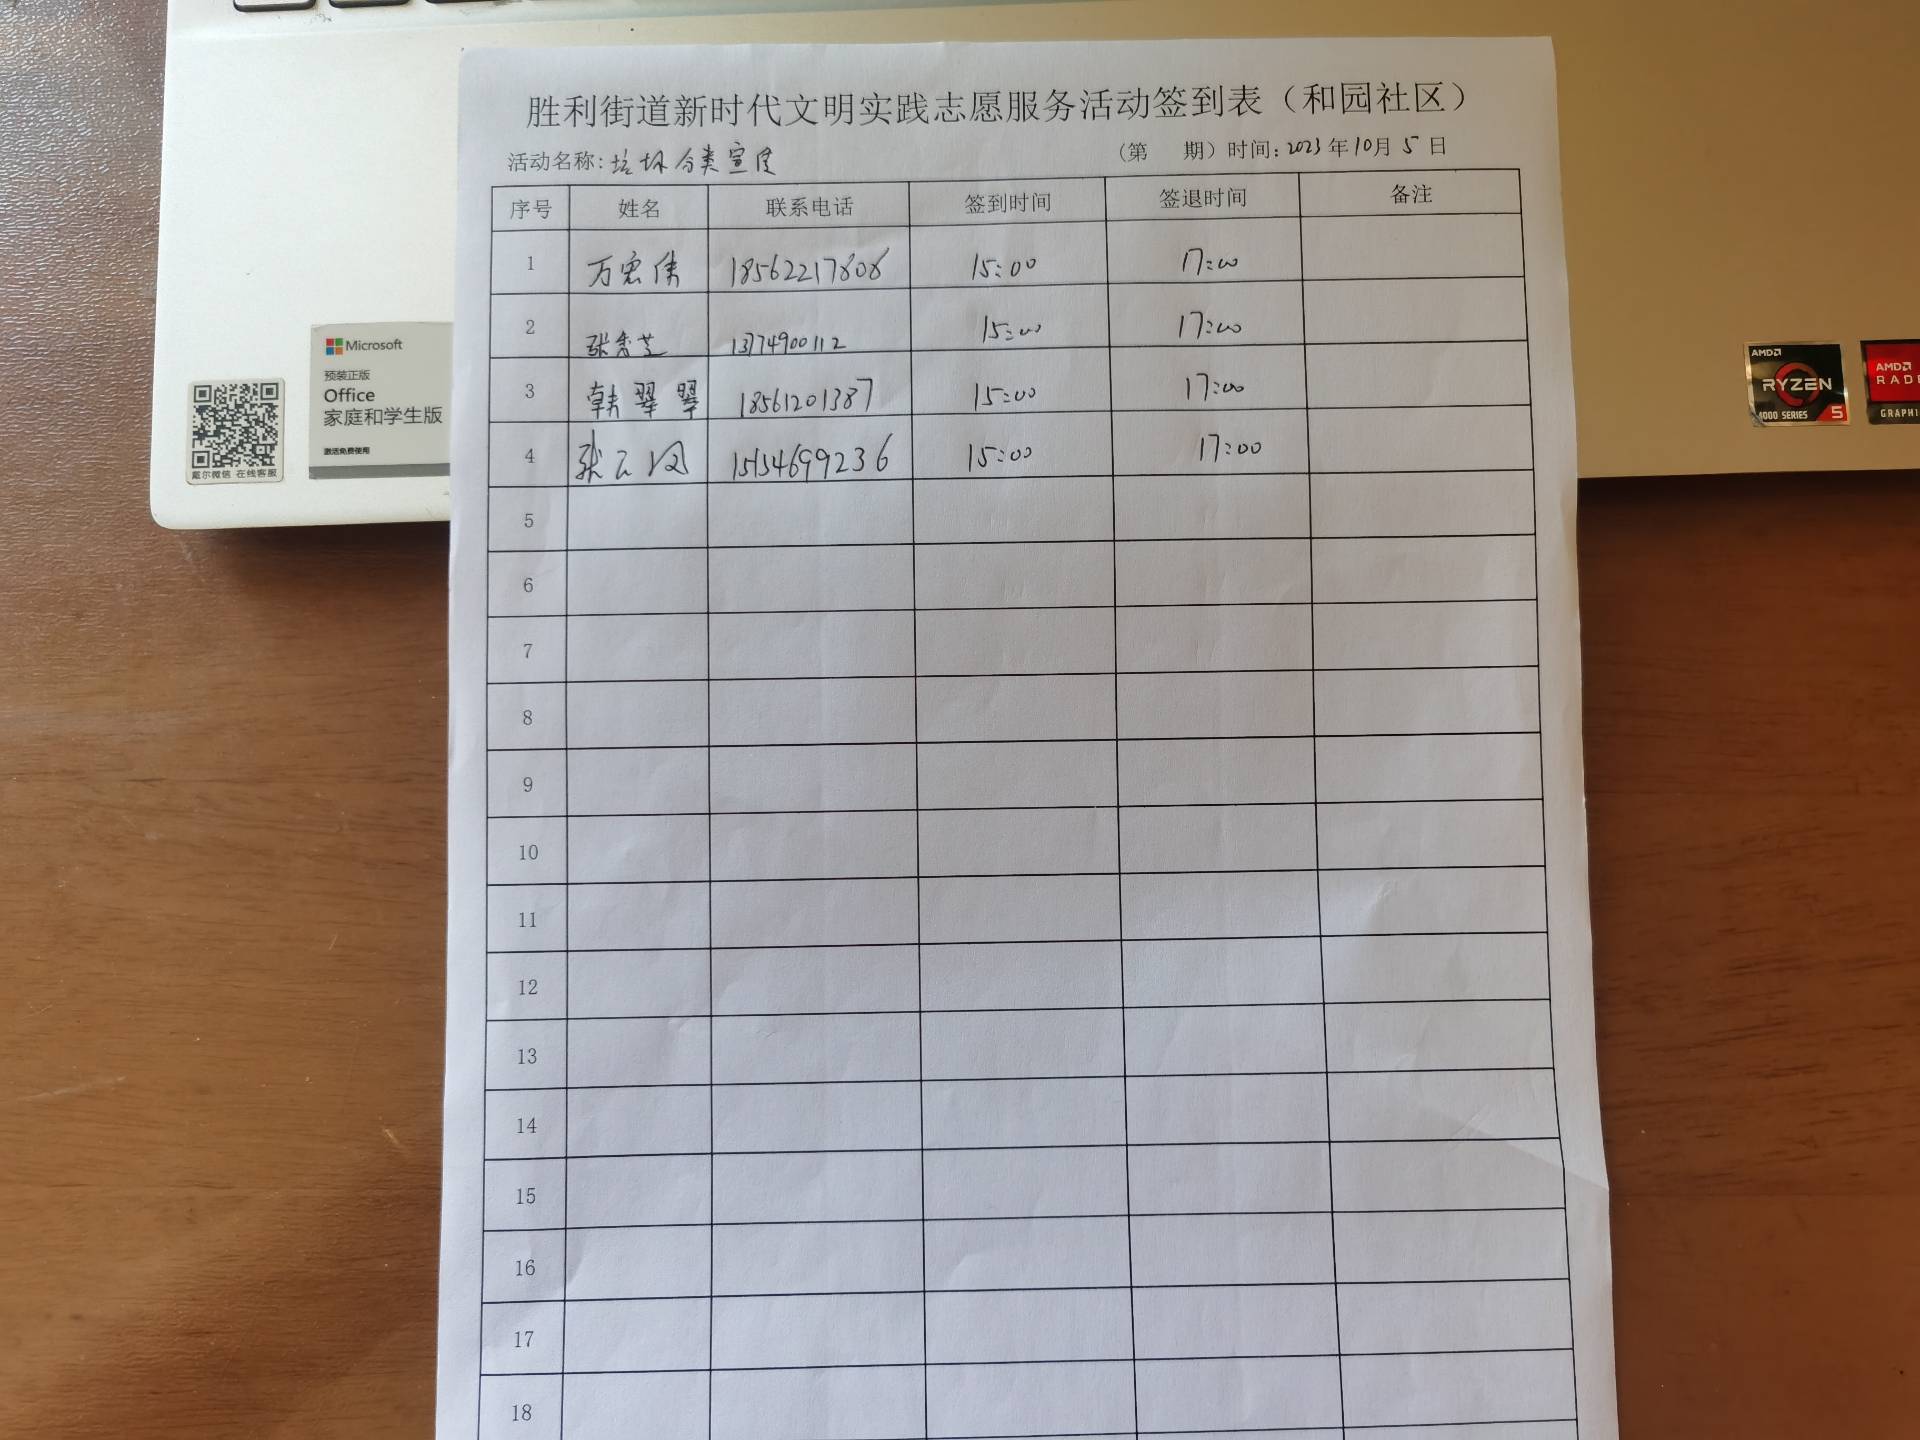 胜利街道新时代文明实践志愿服务活动签到表（和园社区）
活动名称: 垃圾分类宣传 （第 期）时间: 2023年10月5日
序号 姓名 联系电话 签到时间 签退时间 备注
1 万宏伟 18562217808 15:00 17:00
2 张秀芝 13774900112 15:00 17:00
3 韩翠翠 18561201387 15:00 17:00
4 张 15154699236 15:00 17:00
5
6
7
8
9
10
11
12
13
14
15
16
17
18
Microsoft
预装正版
Office
家庭和学生版
激活免费使用
戴尔微信 在线客服
AMD
RYZEN
4000 SERIES 5
AMD
RADE
GRAPHI